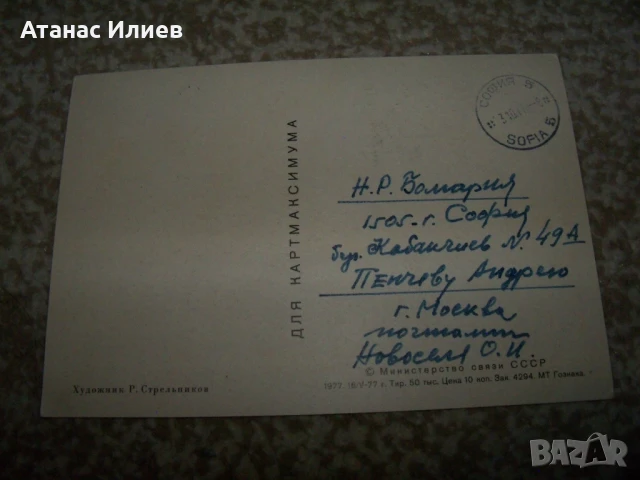 Атанас Илиев
СОФИЯ 5
SOFIA 5
ДЛЯ КАРТМАКСИМУМА
Н.Р. Болгария
1505-г. София
бул. Кабакчиев №. 49А
Пенчеву Андрею
г. Москва
почтамт
Новоселя О.И.
© Министерство связи СССР
1977. 18/V-77 г. Тер. 50 тыс. Цена 10 коп. Зак. 4294. МТ Гознака.
Художник Р. Стрельников
BAZAR